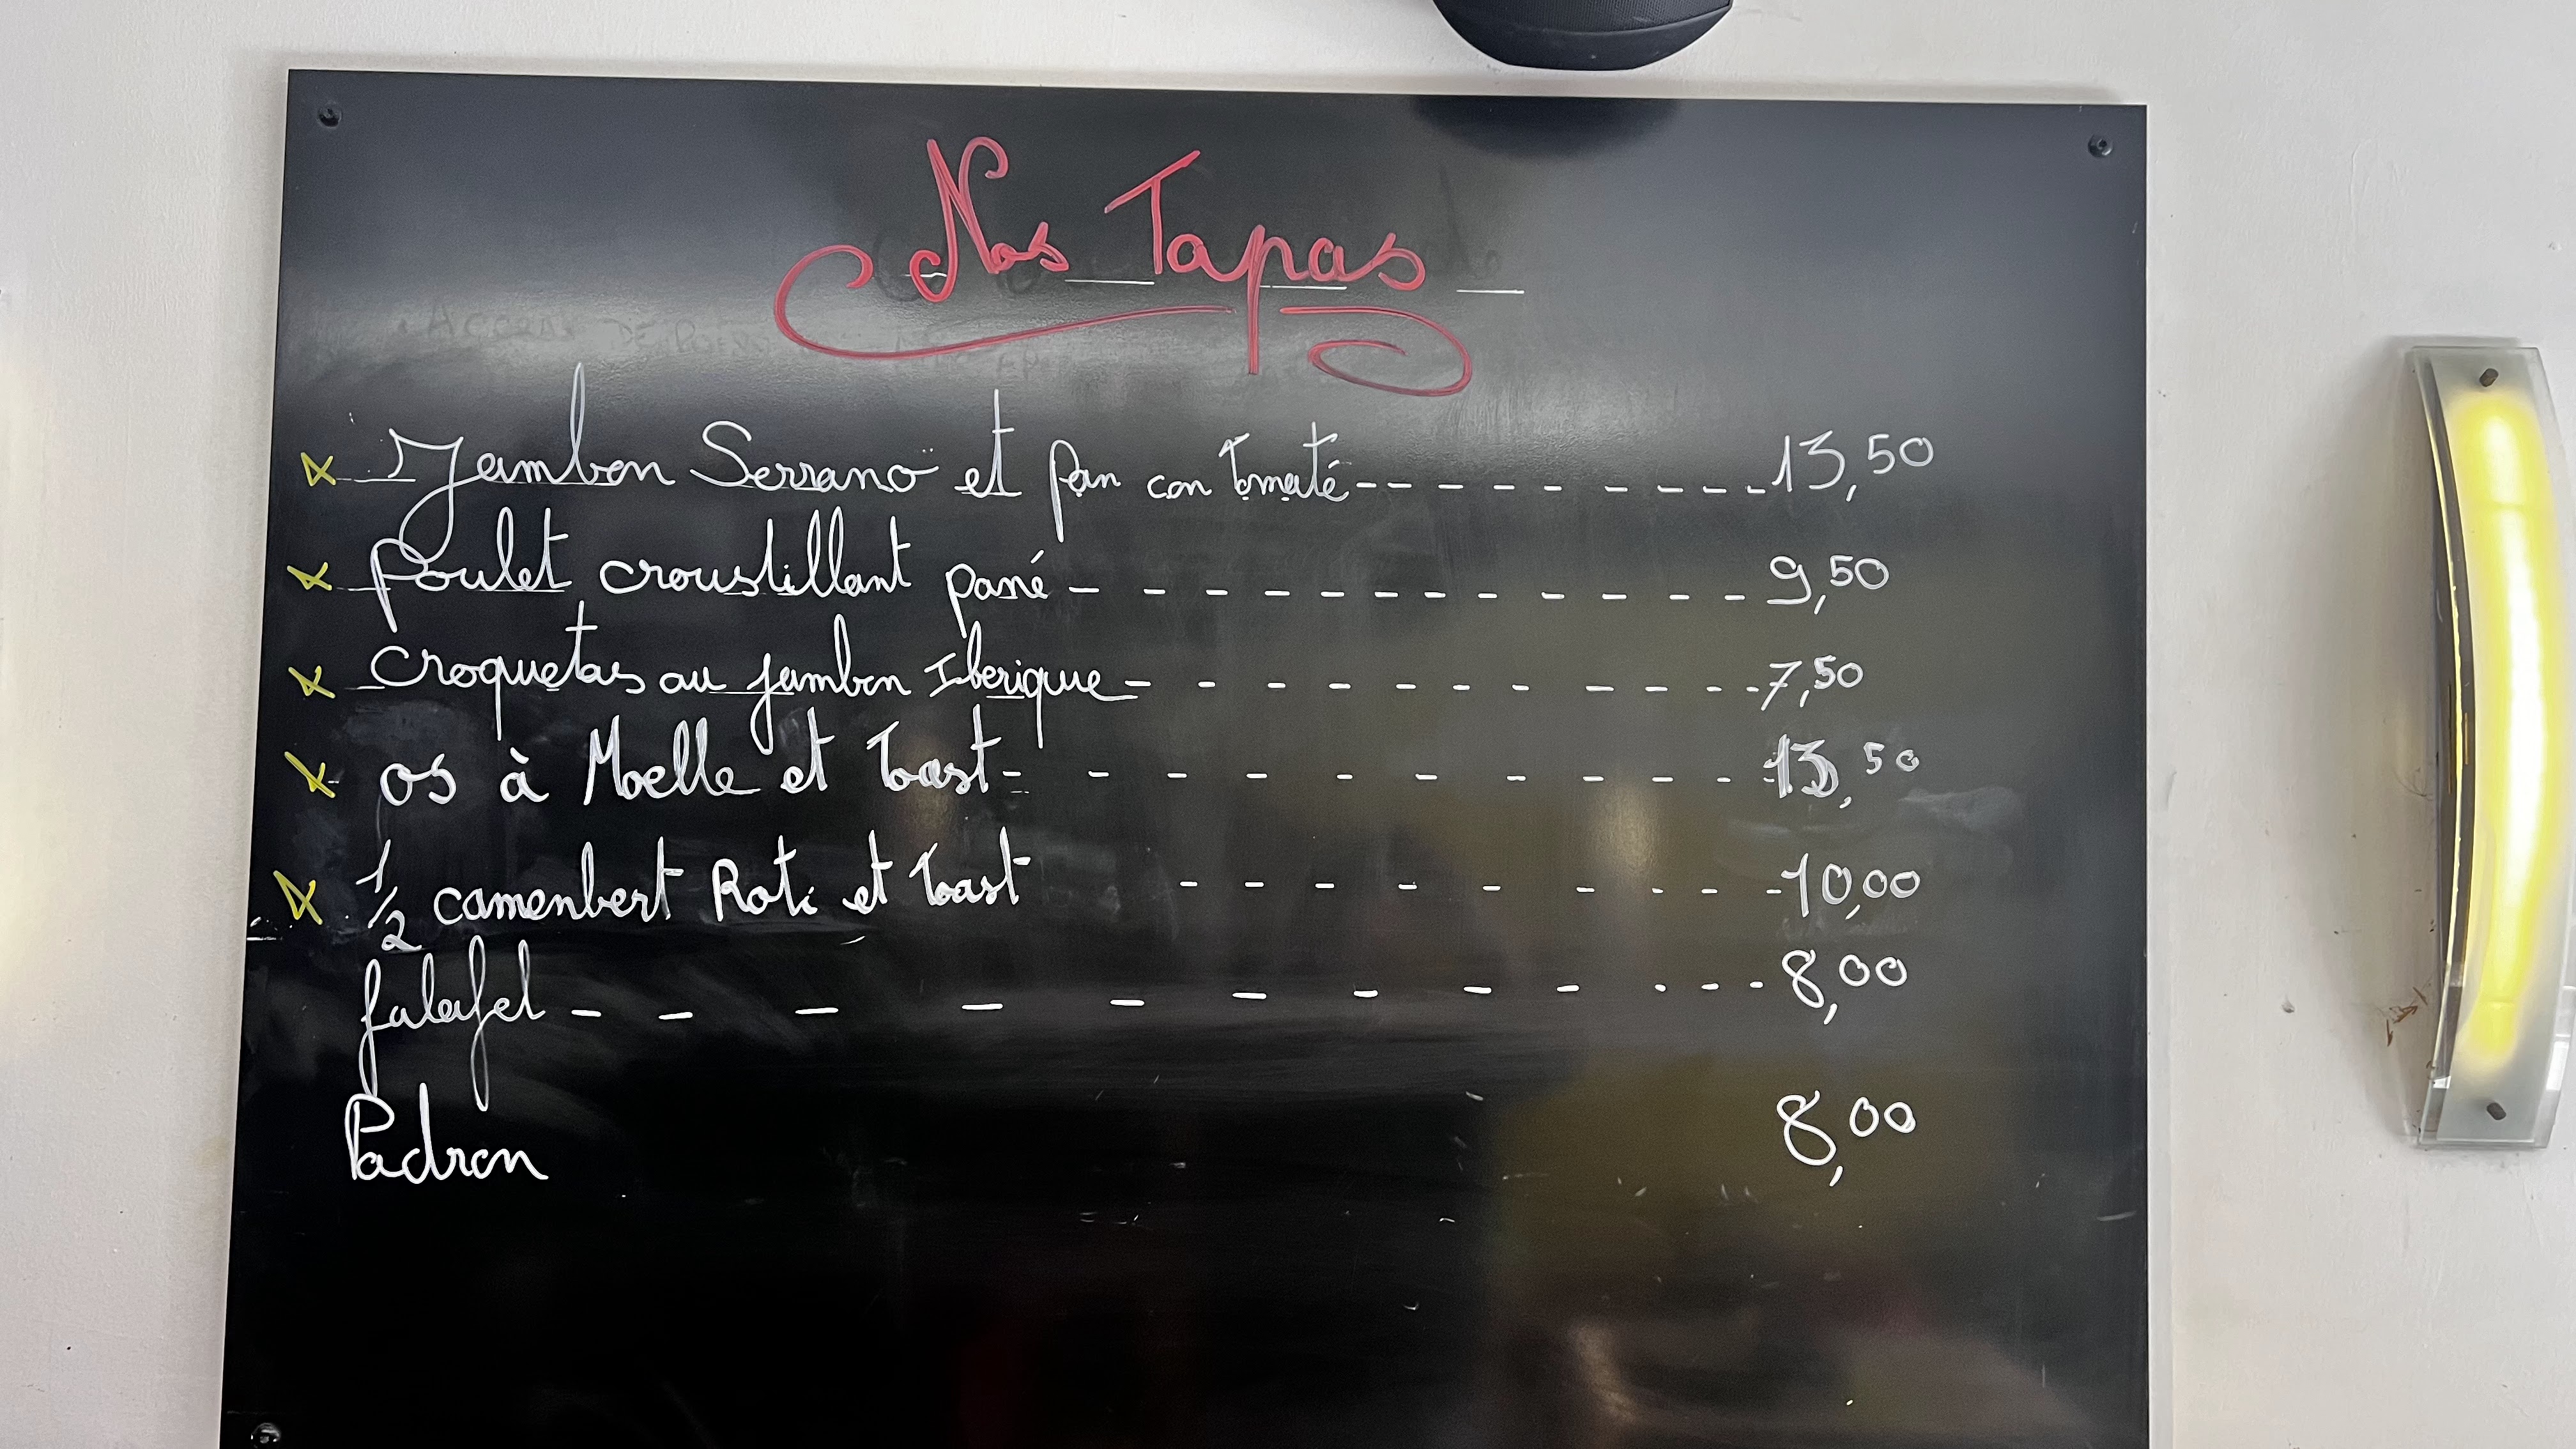 Nos Tapas
Jambon Serrano et pan con Tomaté 13,50
Poulet croustillant pané 9,50
Croquetas au jambon Iberique 7,50
os à Moelle et Toast 13,50
1/2 camenbert Roti et Toast 10,00
falafel 8,00
Padron 8,00